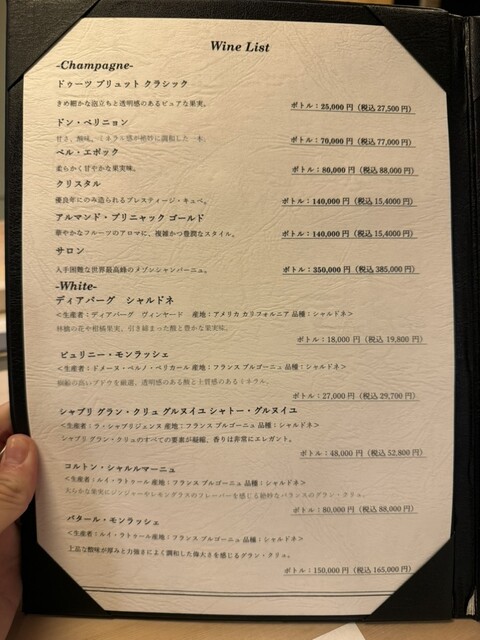 Wine List
-Champagne-
ドゥーツ ブリュット クラシック
きめ細かな泡立ちと透明感のあるピュアな果実。
ボトル：25,000 円（税込 27,500 円）
ドン・ペリニョン
甘さ、酸味、ミネラル感が絶妙に調和した一本。
ボトル：70,000 円（税込 77,000 円）
ベル・エポック
柔らかく甘やかな果実味。
ボトル：80,000 円（税込 88,000 円）
クリスタル
優良年にのみ造られるプレスティージ・キュベ。
ボトル：140,000 円（税込 15,4000 円）
アルマンド・ブリニャック ゴールド
華やかなフルーツのアロマに、複雑かつ豊潤なスタイル。
ボトル：140,000 円（税込 15,4000 円）
サロン
入手困難な世界最高峰のメゾンシャンパーニュ。
ボトル：350,000 円（税込 385,000 円）
-White-
ディアバーグ　シャルドネ
＜生産者：ディアバーグ　ヴィンヤード　産地：アメリカ カリフォルニア 品種：シャルドネ＞
林檎の花や柑橘果実、引き締まった酸と豊かな果実味。
ボトル：18,000 円（税込 19,800 円）
ピュリニー・モンラッシェ
＜生産者：ドメーヌ・ベルノ・ベリカール 産地：フランス ブルゴーニュ 品種：シャルドネ＞
樹齢の高いブドウを厳選、透明感のある酸と上質感のあるミネラル。
ボトル：27,000 円（税込 29,700 円）
シャブリ グラン・クリュ グルヌイユ シャトー・グルヌイユ
＜生産者：ラ・シャブリジェンヌ 産地：フランス ブルゴーニュ 品種：シャルドネ＞
シャブリ グラン・クリュのすべての要素が凝縮、香りは非常にエレガント。
ボトル：48,000 円（税込 52,800 円）
コルトン・シャルルマーニュ
＜生産者：ルイ・ラトゥール 産地：フランス ブルゴーニュ 品種：シャルドネ＞
大らかな果実にジンジャーやレモングラスのフレーバーを感じる絶妙なバランスのグラン・クリュ。
ボトル：80,000 円（税込 88,000 円）
バタール・モンラッシェ
＜生産者：ルイ・ラトゥール 産地：フランス ブルゴーニュ 品種：シャルドネ＞
上品な酸味が厚みと力強さによく調和した偉大さを感じるグラン・クリュ。
ボトル：150,000 円（税込 165,000 円）